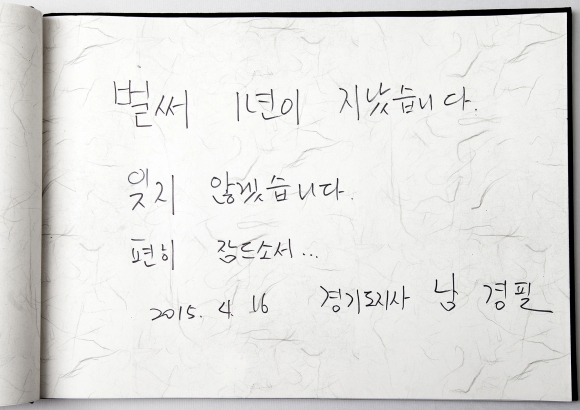 벌써 1년이 지났습니다.
잊지 않겠습니다.
편히 잠드소서...
2015. 4. 16 경기도지사 남경필